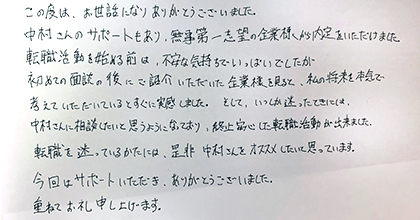 この度は、お世話になりありがとうございました。
中村さんのサポートもあり、無事第一志望の企業様から内定をいただけました。
転職活動を始める前は、不安な気持ちでいっぱいでしたが
初めての面談の後にご紹介いただいた企業様を見ると、私の将来を本気で
考えていただいているとすぐに実感しました。そして、いつしか迷ったときには、
中村さんに相談したいと思うようになっており、終始安心した転職活動が出来ました。
転職を迷っているかたには、是非中村さんをオススメしたいと思っています。
今回はサポートいただき、ありがとうございました。
重ねてお礼申し上げます。